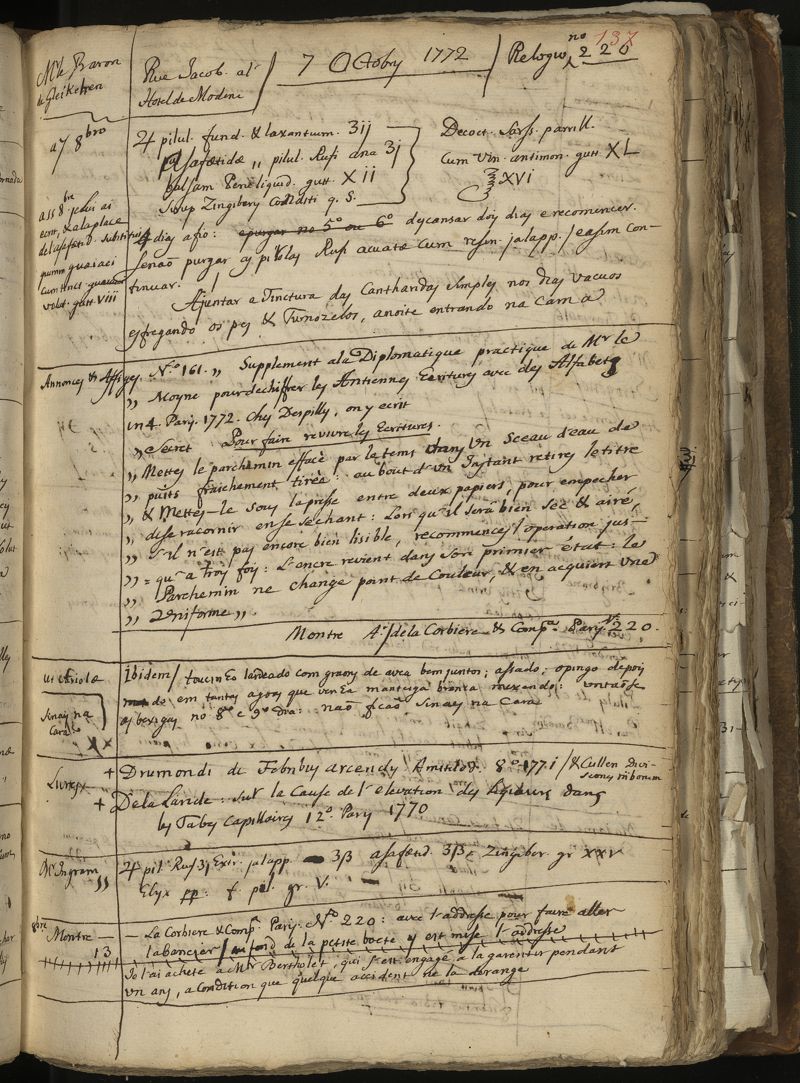 137
Mr. le Baron
de Gleikehen
Rue Jacob. al'
Hotel de Modene
7 Octobry 1772
Relogio no 220
a 7 8bro
♃ pilul. fund. & laxantium. 3ij
asafœtidæ „ pilul. Rufi ana 3j
balsam Peru liquid. gutt. Xii
Sirup Zingibery Conditi q. S.
Decoct. Sarss. parrill.
Cum Vin. antimon. gutt XL
XVI
a 15 8bre je lui ai
ecrit, & a la place
de l'asafetid. Substituir
gumm guaiaci
cum tinct guaiac
volat. gutt VIII
4 diaj afio: epurgar no 5o ou 6o dejcansar doij diaj e recomencer.
Senaõ purgar aj pirolaj Rufi acuatæ cum resin. jalapp. / easim con-
tinuar.
Ajuntar a Tinctura daj Cantharidaj simplej noj diaj vacuos
esfregando os pej & Turnozelos, anoite entrando na Cama
Annoncej & Affigej. N.o 161. „ Supplement a la Diplomatique practique de Mr le
„ Moyne pour dechiffrer lej Antiennej Ecriturej avec dej Alfabetj
in 4. Parij. 1772. Chej Despilly, on y ecrit
„ Secret Pour fair revivre lej Ecritures.
„ Mettej le parchemin effacé par le tems danj Un Sceau d'eau de
„ puits fraichement tirée: au bout d'un Instant retirej le titre
„ & Mettej-le souj la presse entre deux papiers, pour empecher
„ de se racornir en se sechant: Lors qu'il sera bien sec & airé,
„ s'il n'est paj encore bien lisible, recommencej l'operation jus-
„ = qu'a troij foij: L'encre revient danj son primier état: le
„ Parchemin ne change point de Couleur, & en acquiert Une
„ Uniforme „.
Montre A./de la Corbiere & Compa Parij No 220.
ut Ariolæ
Sinaij na
Cara
Ibidem / toucinho lardeado com graonj de avea bem juntos; assado, o pingo depoij
em tantaj agoaj que venha manteiga branca mexendo: untaõse
aj bexigaj no 8o e 9o dia: naõ ficaõ Sinaij na Cara
Livrej
+ Drumondi de Febribuj arcendij Amstelod. 8o 1771 / & Cullen divi-
sionij morborum
+ De la Lande: sur la Cause de l'elevation dej liqueurs danj
lej Tubej Capillairej 12o Parij 1770
Mr Ingram
„
♃ pil. Ruf 3j Extr. jalapp. 3ß asafœtid. 3ß, Zingiber. gr XXV
Elyx pp: f. pil. gr. V.
8bre
Montre —
13
— La Corbiere & Compe Parij. No 220: avec l'addresse pour faire aller
labancier / au fond de la petite boete y est mise l'addresse
Je l'ai achete a Mr Bertholet, qui s'est engagé a la garentir pendant
Un anj, a Condition que quelque accident ne la derange